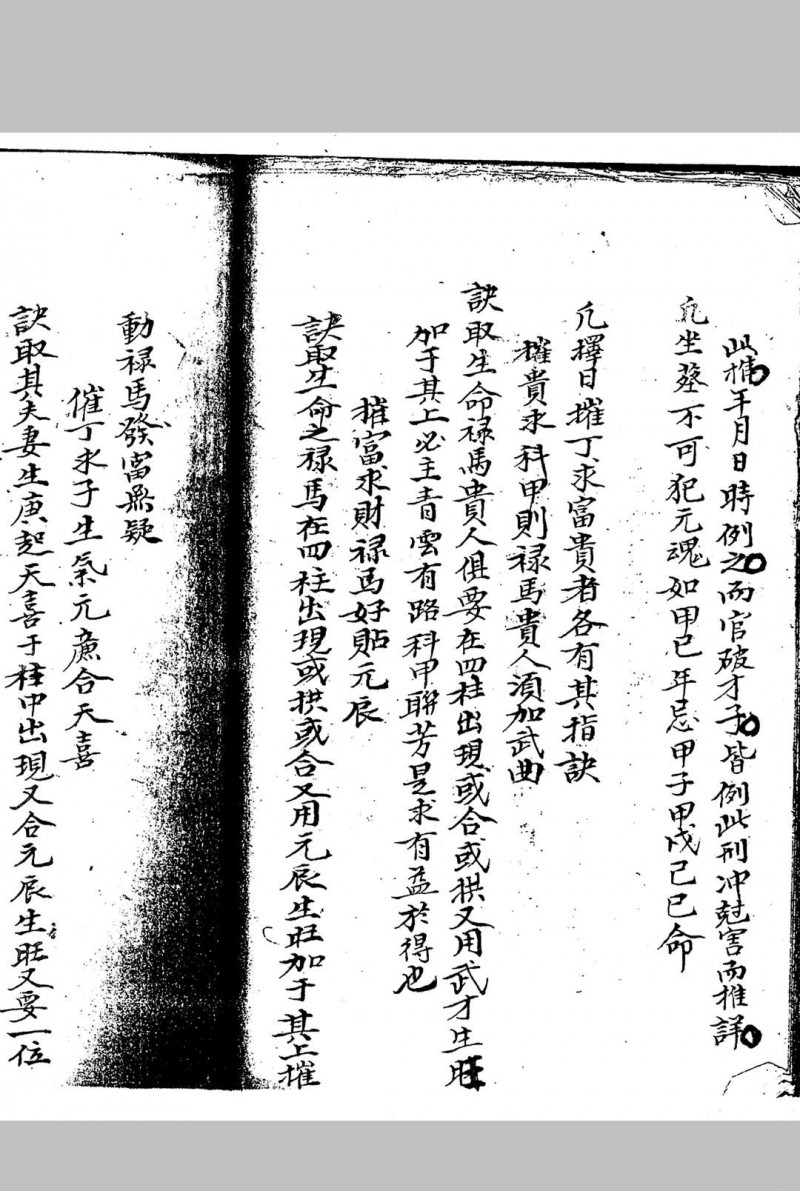 此推年月日時例之而官破才子皆例此刑冲尅害而推詳
凡坐葬不可犯元魂如甲己年忌甲子甲戌己巳命
凡擇日摧丁求富貴者各有其指訣
摧貴求科甲則禄馬貴人須加武曲
訣取生命禄馬貴人俱要在四柱出現或合或拱又用武才生旺
加于其上必主青雲有路科甲聯芳是求有益於得也
摧富求財禄馬好貼元辰
訣取生命之禄馬在四柱出現或拱或合又用元辰生旺加于其上摧
動禄馬發富無疑
催丁求子生氣元廉合天喜
訣取其夫妻生庚起天喜于柱中出現又合元辰生旺又要一位